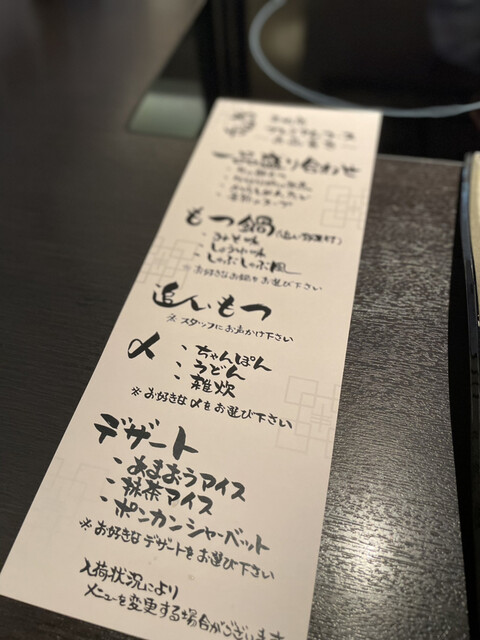 一品盛り合わせ
もつ鍋(追い野菜付)
・みそ味
・しょうゆ味
・しゃぶしゃぶ風
※お好きなお鍋をお選び下さい
追いもつ
※スタッフにお声かけ下さい
〆
・ちゃんぽん
・うどん
・雑炊
※お好きな〆をお選び下さい
デザート
・あまおうアイス
・抹茶アイス
・ポンカンシャーベット
※お好きなデザートをお選び下さい
入荷状況により
メニューを変更する場合がございます